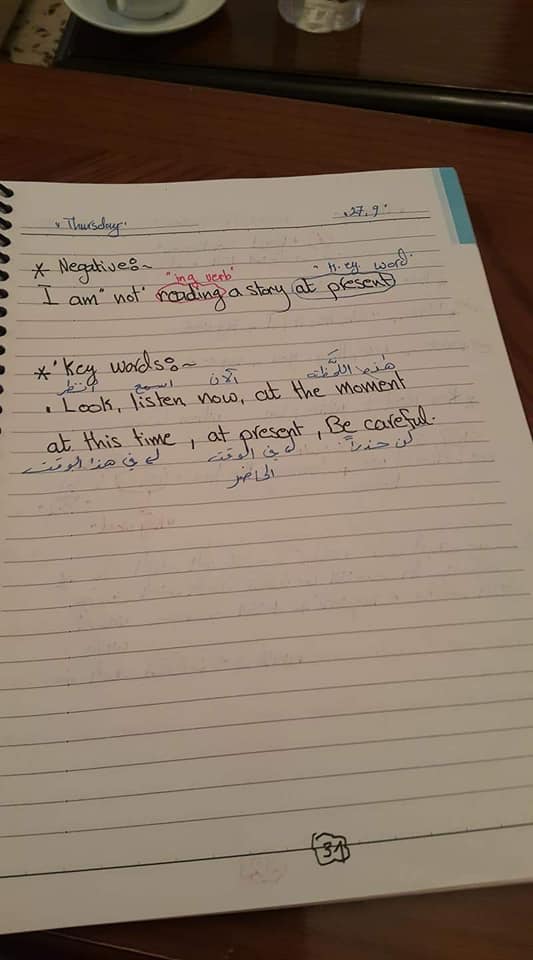 "Thursday"
.27.9.
* Negative:~
"ing verb" "K.ey word"
I am "not" reading a story at present
* 'Key words:~
انتظر اسمع الآن هذه اللحظة
. Look, listen now, at the moment
at this time, at present, Be careful.
في هذا الوقت في الوقت كن حذراً
الحاضر
31